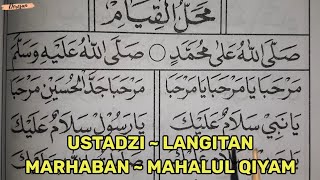 محل القيام
صَلَّى اللهُ عَلَى مُحَمَّدٍ ○ صَلَّى اللهُ عَلَيْهِ وَسَلَّمَ
مَرْحَبًا يَا مَرْحَبًا يَا مَرْحَبًا مَرْحَبًا جَدَّ الْحُسَيْنِ مَرْحَبًا
يَا نَبِي سَلَامٌ عَلَيْكَ يَا رَسُول سَلَامٌ عَلَيْكَ
USTADZI ~ LANGITAN
MARHABAN ~ MAHALUL QIYAM